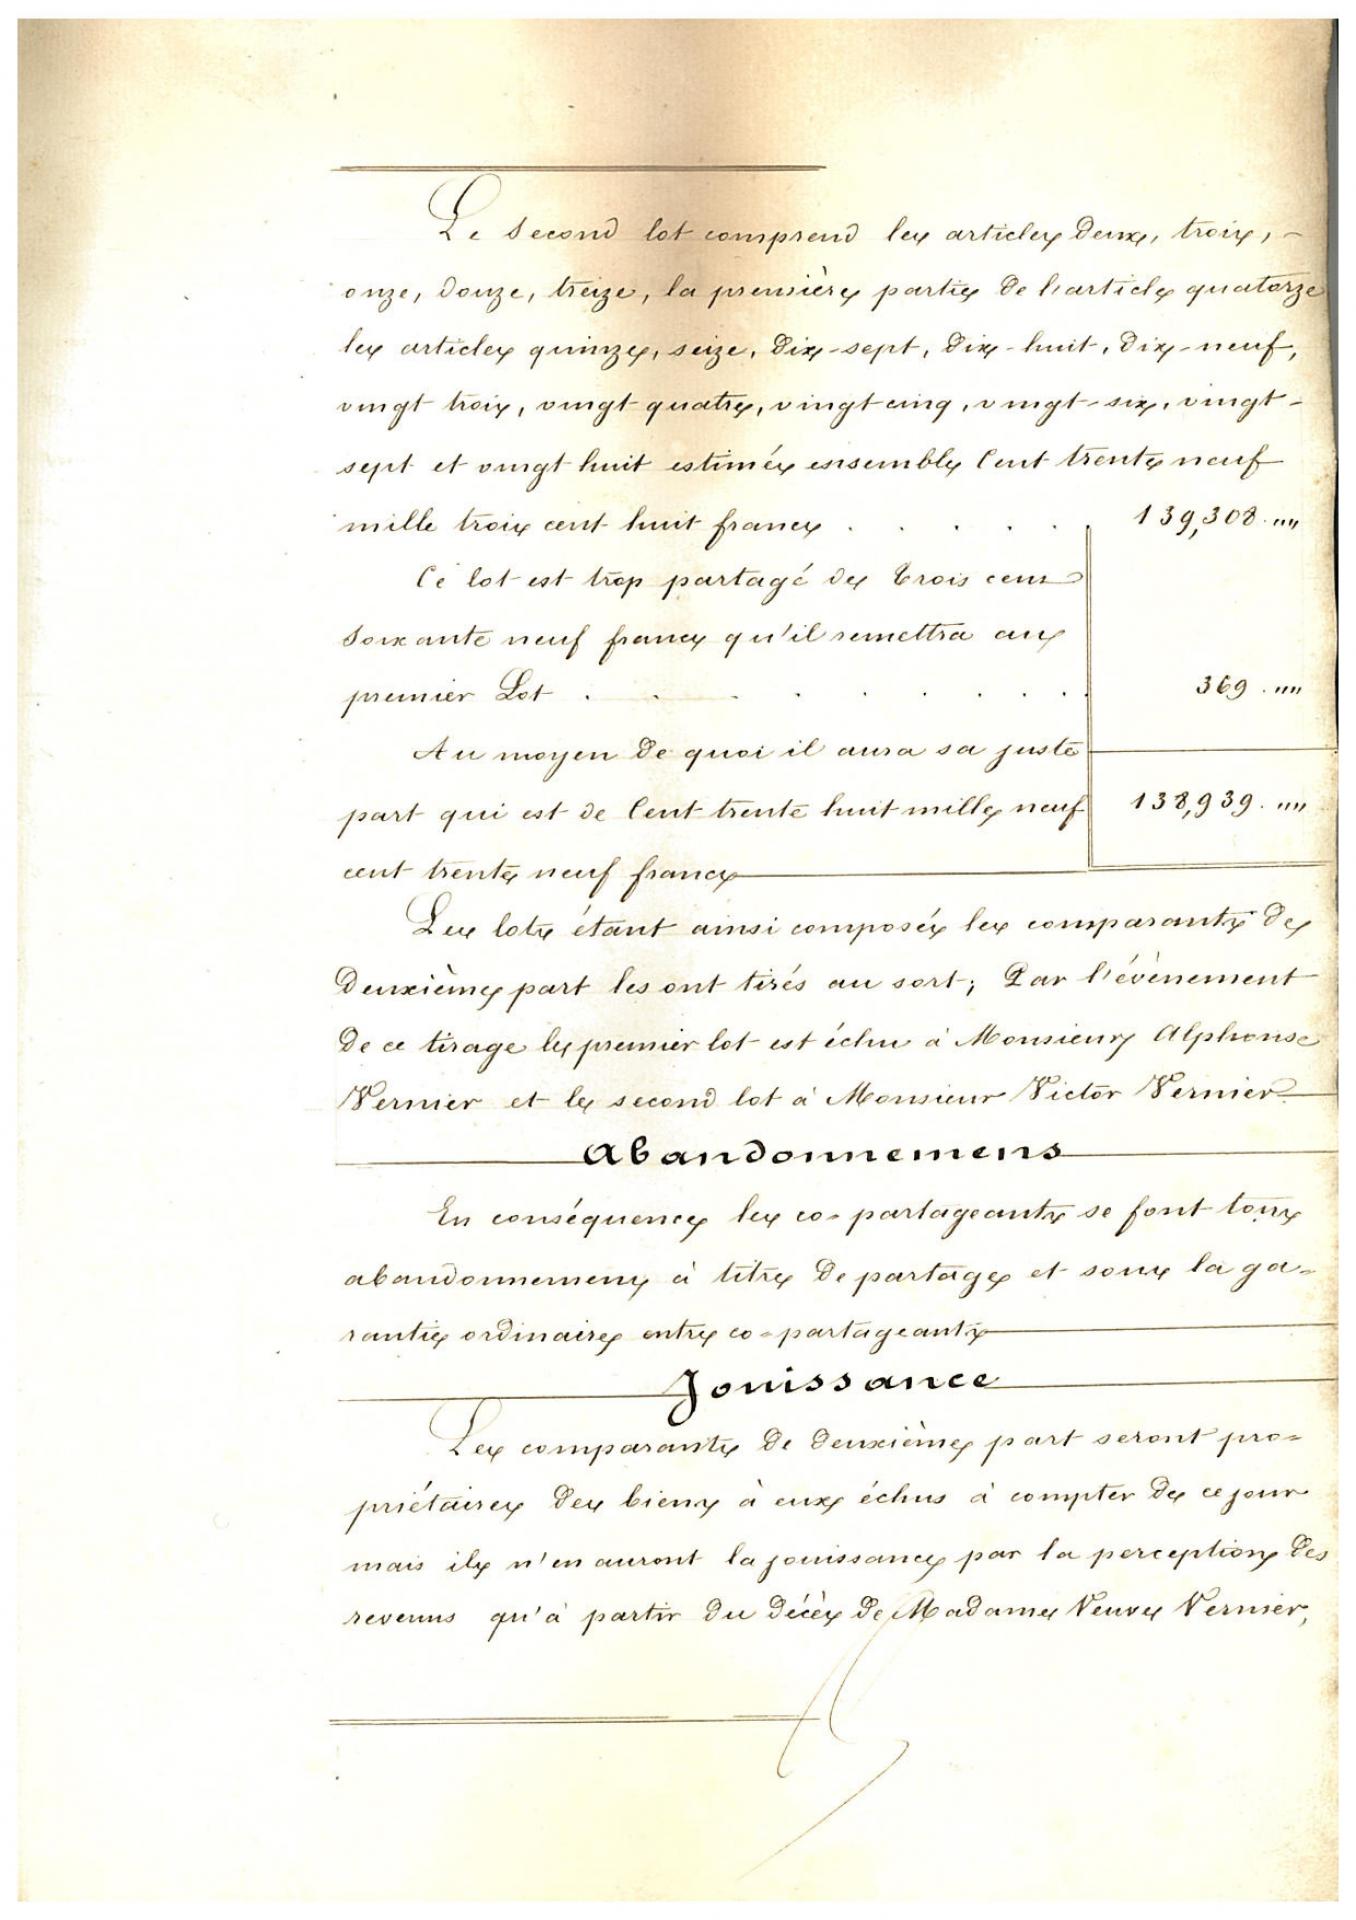 Le second lot comprend les articles deux, trois,
onze, douze, treize, la première partie de l'article quatorze
les articles quinze, seize, dix-sept, dix-huit, dix-neuf,
vingt trois, vingt quatre, vingt cinq, vingt-six, vingt-
sept et vingt huit estimés ensemble Cent trente neuf
mille troix cent huit francs . . . . . 139,308 . ""
Ce lot est trop partagé de Trois cent
soixante neuf francs qu'il remettra au
premier Lot . . . . . . . . . 369 . ""
Au moyen de quoi il aura sa juste
part qui est de Cent trente huit mille neuf 138,939 . ""
cent trente neuf francs
Les lots étant ainsi composés les comparants de
deuxième part les ont tirés au sort; Par l'évènement
de ce tirage le premier lot est échu à Monsieur Alphonse
Vernier et le second lot à Monsieur Victor Vernier
Abandonnemens
En conséquence les co-partageants se font tous
abandonnemens à titre de partage et sous la ga-
rantie ordinaire entre co-partageants
Jouissance
Les comparants de deuxième part seront pro-
priétaires des biens à eux échus à compter de ce jour
mais ils n'en auront la jouissance par la perception des
revenus qu'à partir du décès de Madame Veuve Vernier,